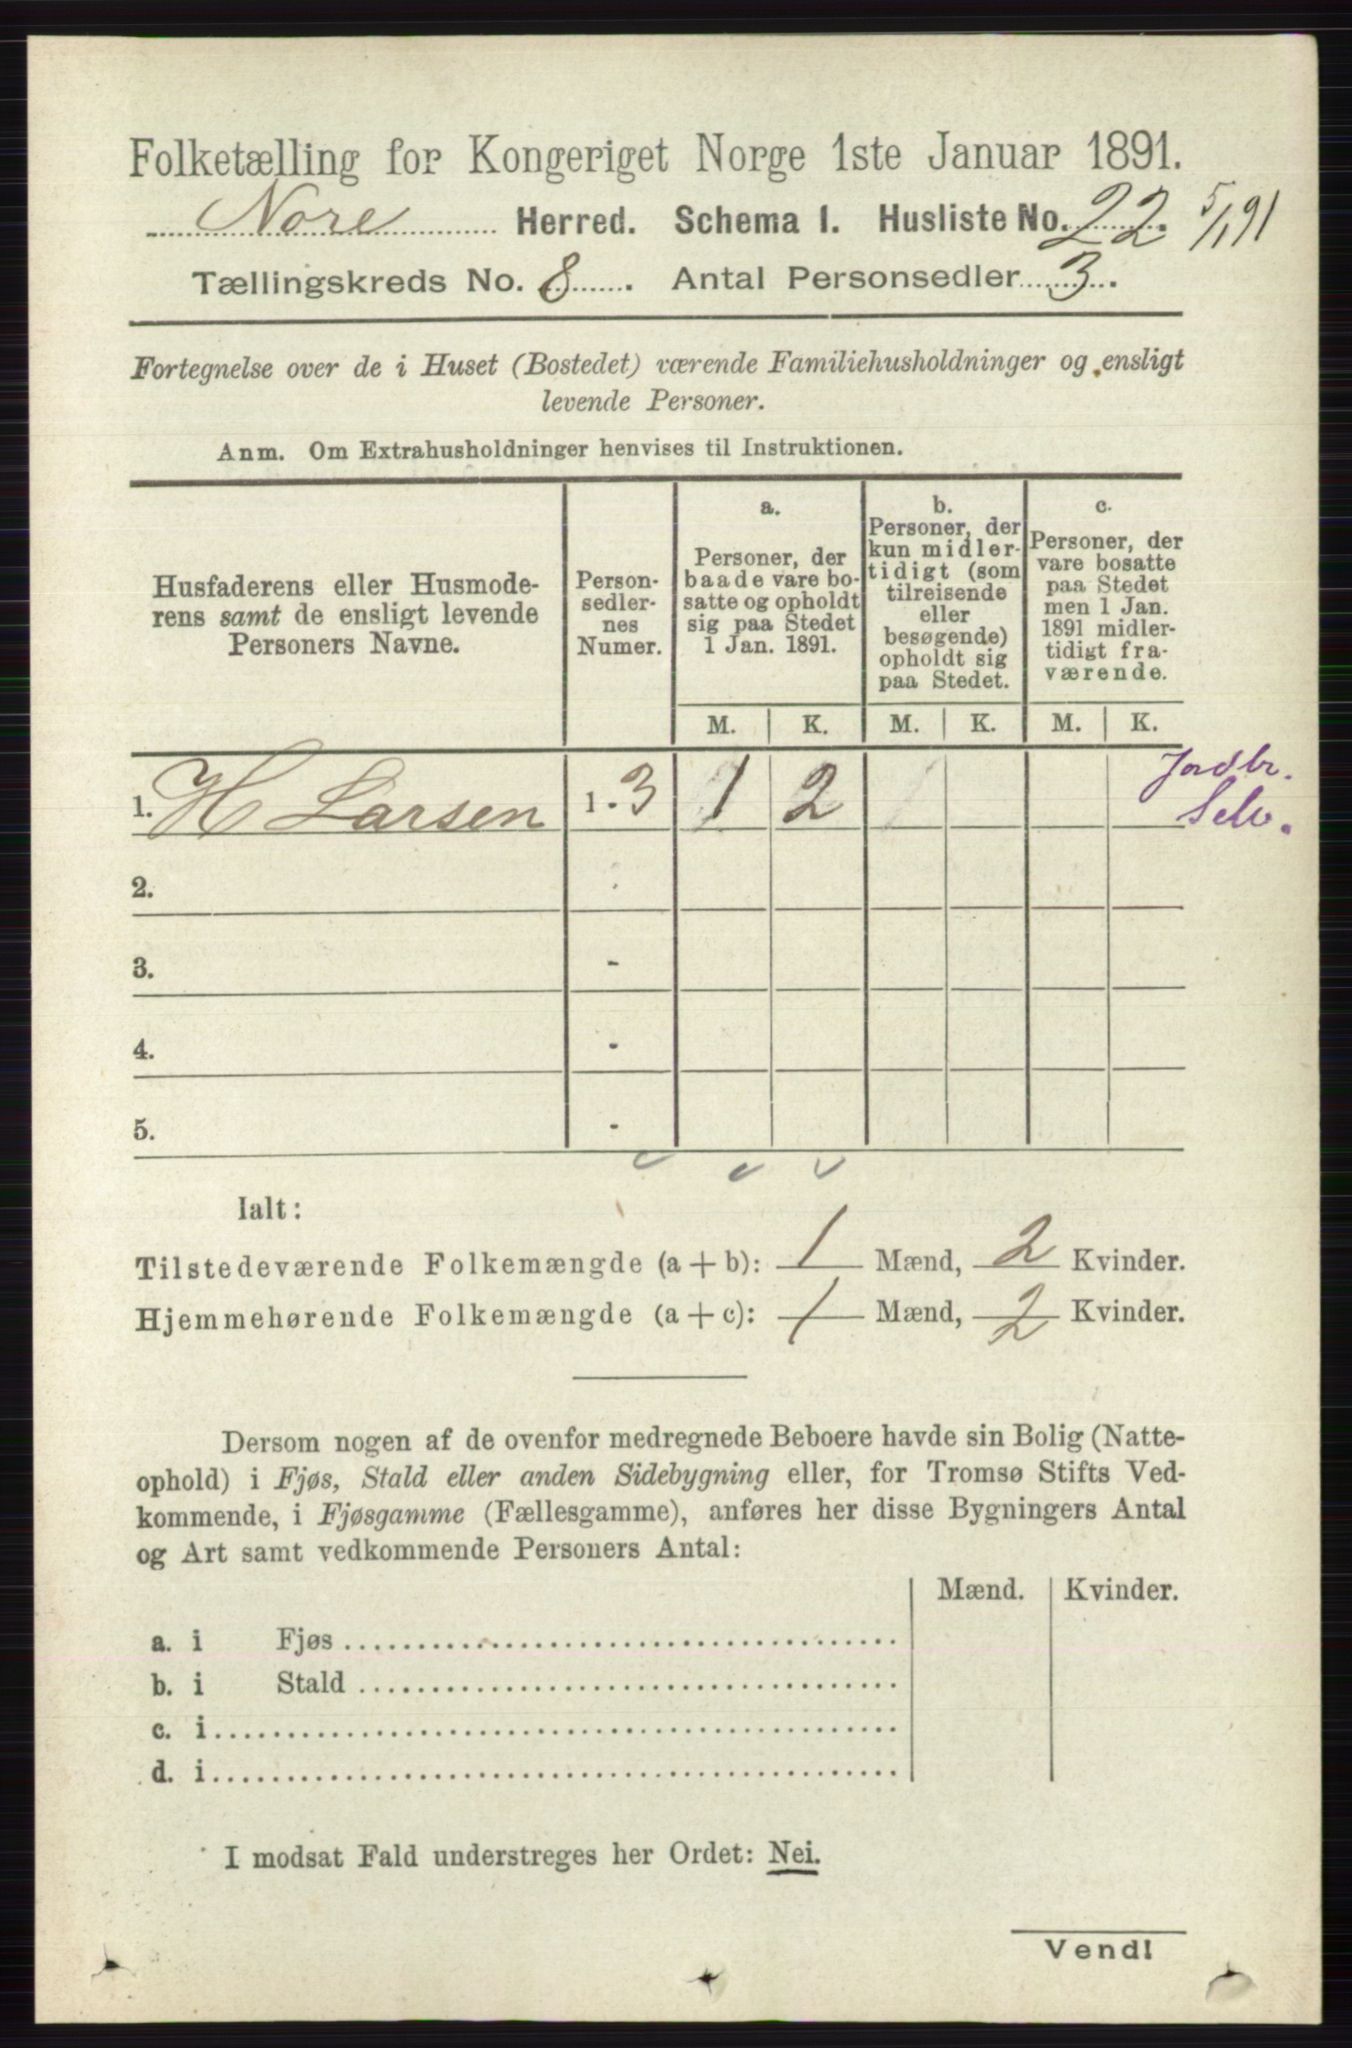 Folketælling for Kongeriget Norge 1ste Januar 1891.
Nore Herred. Schema 1. Husliste No. 22. 5/1 91
Tællingskreds No. 8. Antal Personsedler 3.
Fortegnelse over de i Huset (Bostedet) værende Familiehusholdninger og ensligt
levende Personer.
Anm. Om Extrahusholdninger henvises til Instruktionen.
Husfaderens eller Husmode-
rens samt de ensligt levende
Personers Navne.
Person-
sedler-
nes
Numer.
a.
Personer, der
baade vare bo-
satte og opholdt
sig paa Stedet
1 Jan. 1891.
b.
Personer, der
kun midler-
tidigt (som
tilreisende
eller
besøgende)
opholdt sig
paa Stedet.
c.
Personer, der
vare bosatte
paa Stedet
men 1 Jan.
1891 midler-
tidigt fra-
værende.
M. K. M. K. M. K.
1. H Larsen 1 - 3 1 2 Jordbr.
Selv.
2.
3. -
4. -
5. -
Ialt:
Tilstedeværende Folkemængde (a + b): 1 Mænd, 2 Kvinder.
Hjemmehørende Folkemængde (a + c): 1 Mænd, 2 Kvinder.
Dersom nogen af de ovenfor medregnede Beboere havde sin Bolig (Natte-
ophold) i Fjøs, Stald eller anden Sidebygning eller, for Tromsø Stifts Ved-
kommende, i Fjøsgamme (Fællesgamme), anføres her disse Bygningers Antal
og Art samt vedkommende Personers Antal:
Mænd. Kvinder.
a. i Fjøs
b. i Stald
c. i
d. i
I modsat Fald understreges her Ordet: Nei.
Vend!